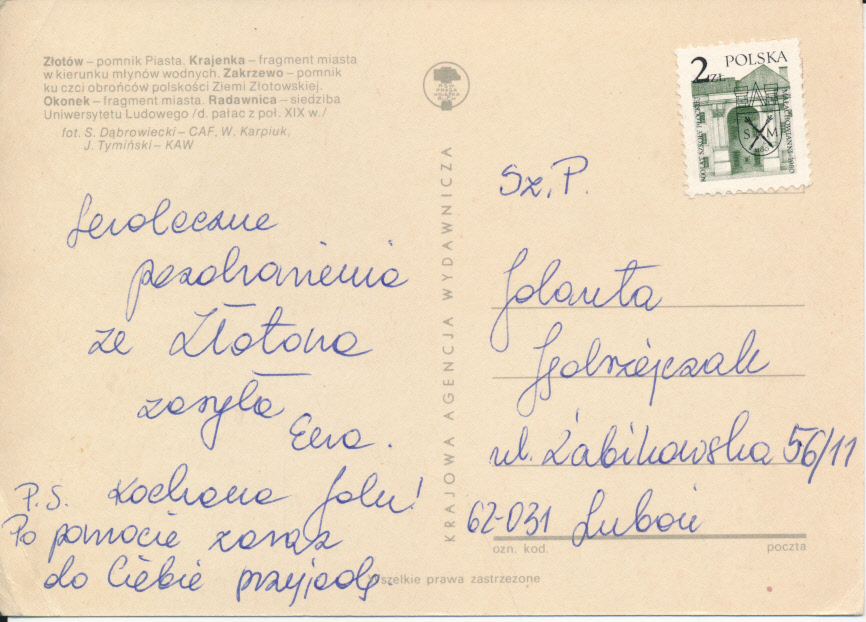 Złotów – pomnik Piasta. Krajenka – fragment miasta
w kierunku młynów wodnych. Zakrzewo – pomnik
ku czci obrońców polskości Ziemi Złotowskiej.
Okonek – fragment miasta. Radawnica – siedziba
Uniwersytetu Ludowego /d. pałac z poł. XIX w./
fot. S. Dąbrowiecki – CAF, W. Karpiuk,
J. Tymiński – KAW
Serdeczne
pozdrowienia
ze Złotowa
zasyła
Ewa.
P.S. Kochana Jolu!
Po powrocie zaraz
do Ciebie przyjadę.
KRAJOWA AGENCJA WYDAWNICZA
2 ZŁ POLSKA
S M
Sz.P.
Jolanta
ul. Żabikowska 56/11
62-031 Luboń
ozn. kod. poczta
Wszelkie prawa zastrzeżone